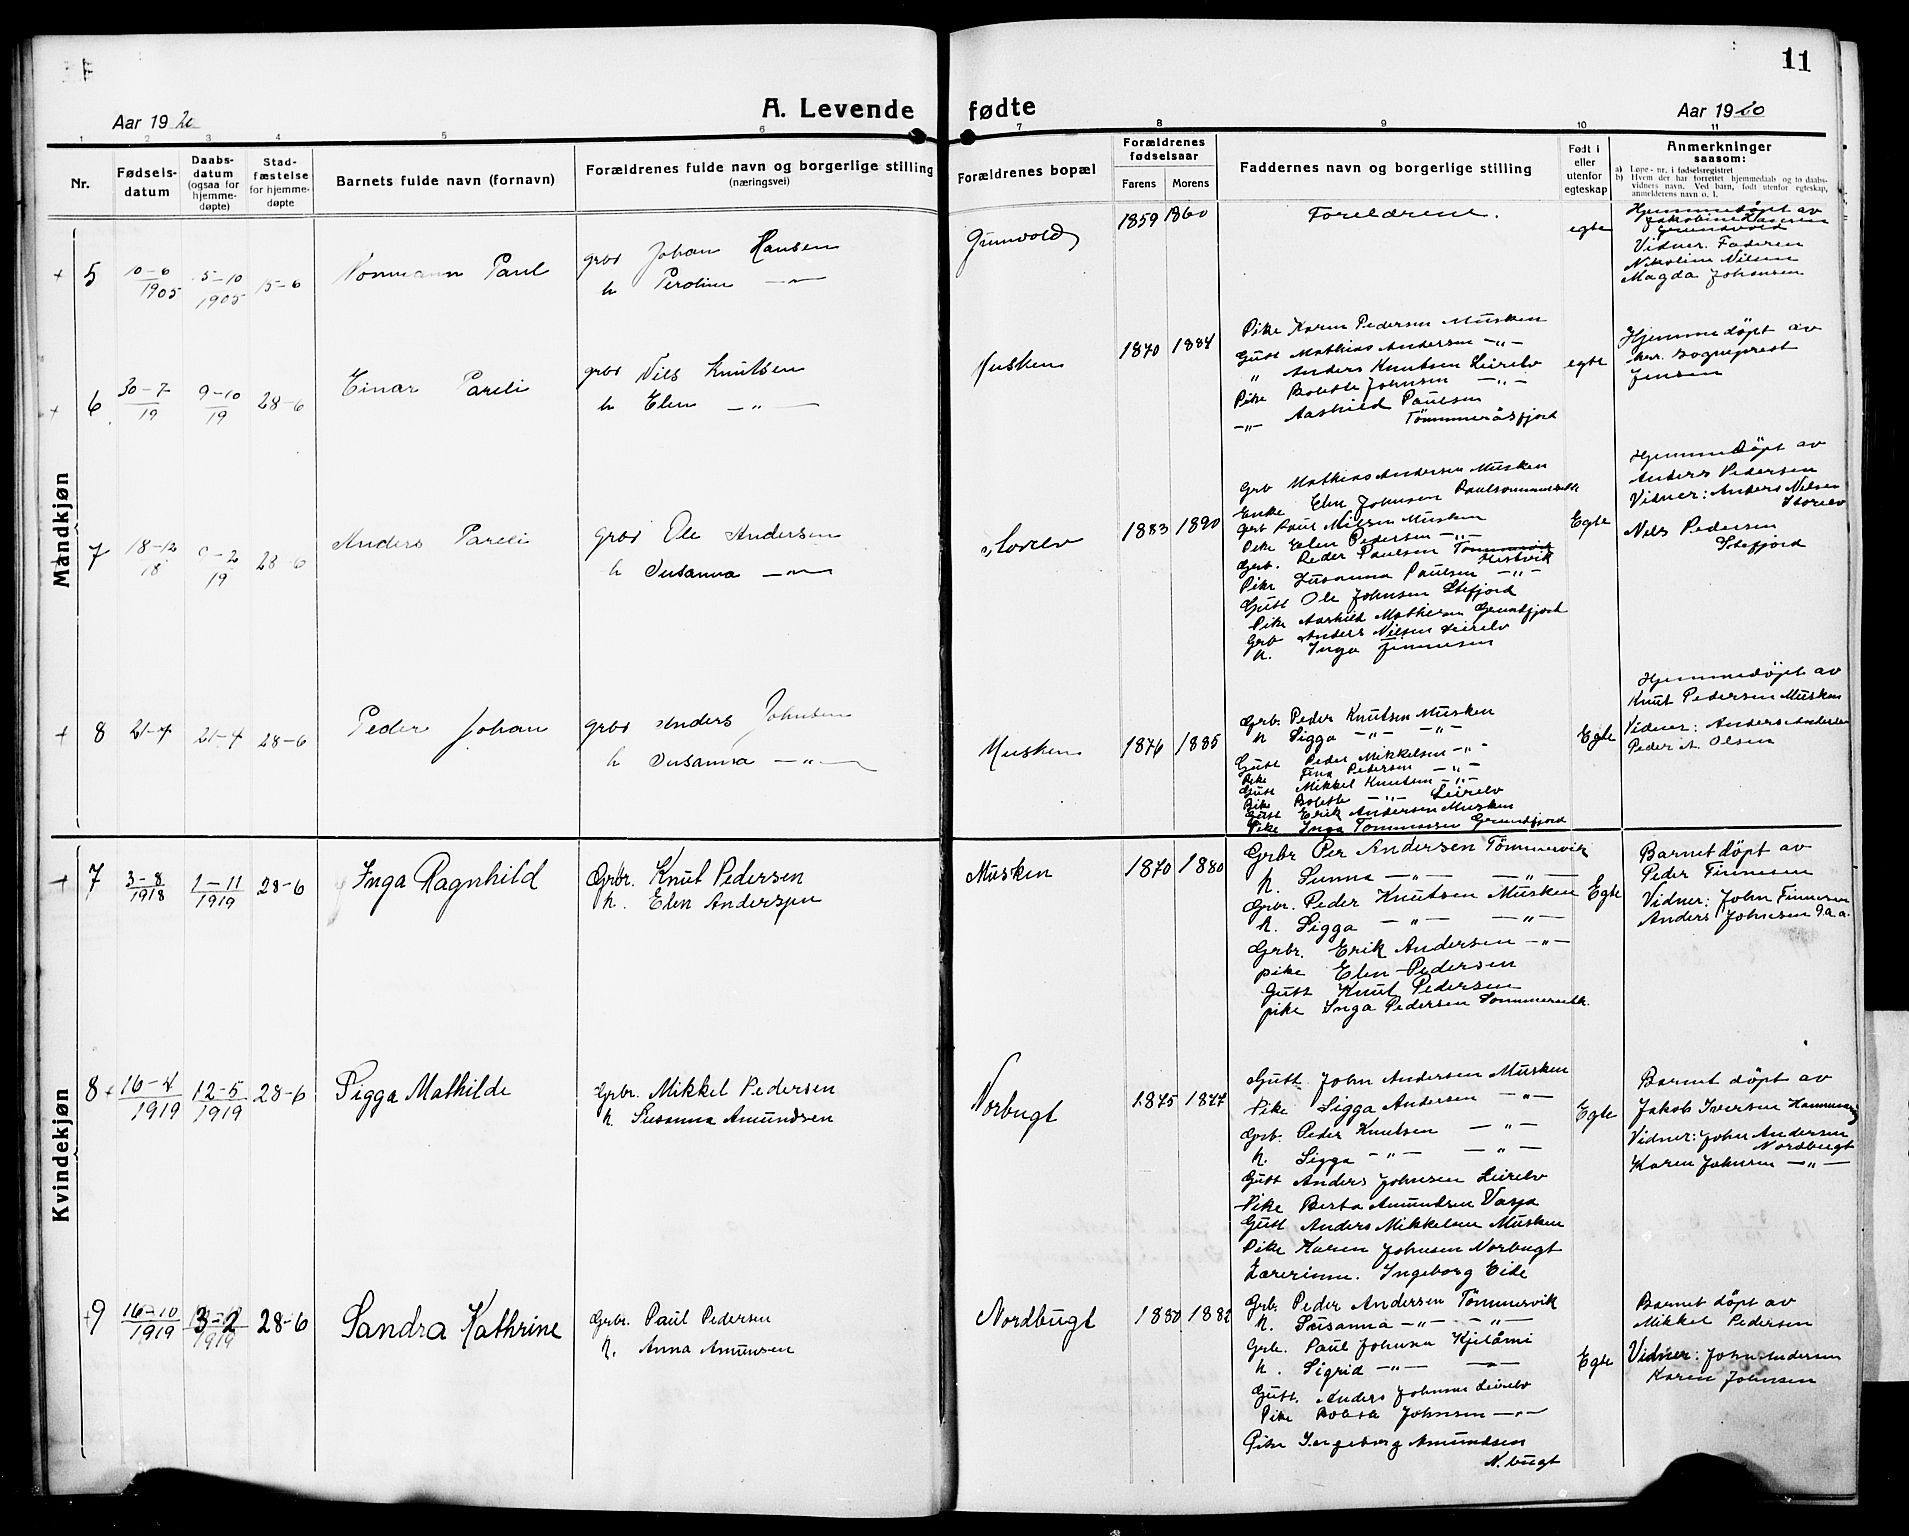 11
A. Levende fødte
Aar 1920
Aar 1920
1 2 3 4 5 6 7 8 9 10 11
Nr.
Fødsels-
datum
Daabs-
datum
(ogsaa for
hjemme-
døpte)
Stad-
fæstelse
for hjemme-
døpte
Barnets fulde navn (fornavn)
Forældrenes fulde navn og borgerlige stilling
(næringsvei)
Forældrenes bopæl
Forældrenes
fødselsaar
Farens Morens
Faddernes navn og borgerlige stilling
Født i
eller
utenfor
egteskap
Anmerkninger
saasom:
a) Løpe-nr. i fødselsregistret
b) Hvem der har forrettet hjemmedaab og to daabs-
vidners navn. Ved barn, født utenfor egteskap,
anmelderens navn o. l.
Mandkjøn
+ 5 10-6 1905 15-10 1905 15-6
Normann Paul
grbr Johan Hansen
h Peroline — " —
Gunvold
1859 1860
Foreldrene.
egte
Hjemmedøpt av
Jakobine Hansen
Grundvold
Vidner. Faderen
Nikoline Nilsen
Magda Johansen
+ 6 30-7 19 9-10 19 28-6
Einar Pareli
grbr Nils Knutsen
h Elen — " —
Musken
1870 1884
Pike Karen Pedersen Musken
Gutt Mathias Andersen — " —
" Anders Knutsen Leirelv
Pike Bolette Johnsen — " —
— " — Aashild Paulsen
Tømmeråsfjord
egte
Hjemmedøpt av
hr. Sogneprest
Jensen
7 18-12 18 9-2 19 28-6
Anders Pareli
grbr Ole Andersen
h Susanna — " —
Storelv
1883 1890
Grb Mathias Andersen Musken
Enke Elen Johnsen
Grb Paul Nilsen Musken
Pike Elen Pedersen — " —
Grb. Peder Paulsen Tømmervik
Hestvik
Pike Susanna Paulsen — " —
Gutt Ole Johnsen Stefjord
Pike Aashild Mathisen Grundfjord
Grb Anders Nilsen Leirelv
h. Inga Finnesen
Egte
Hjemmedøpt av
Anders Pedersen
Vidner: Anders Nilsen
Storelv
Nils Pedersen
Stefjord
+ 8 21-4 21-4 28-6
Peder Johan
grbr Anders Johnsen
h Susanna — " —
Musken
1876 1885
Grb. Peder Knutsen Musken
h Sigga — " — — " —
Gutt Peder Mikkelsen — " —
Pike Fina Pedersen — " —
Gutt Mikkel Knutsen — " —
Pike Bolette — " — Leirelv
Gutt Erik Andersen Musken
Pike Inga Tommassen Grundfjord
Egte
Hjemmedøpt av
Knut Pedersen Musken
Vidner: Anders Andersen
Peder A. Olsen
Kvindekjøn
+ 7 3-8 1918 1-11 1919 28-6
Inga Ragnhild
Grbr. Knut Pedersen
h. Elen Andersen
Musken
1870 1880
Grbr Per Andersen Tømmervik
h. Sunna — " — — " —
Grbr. Peder Knutsen Musken
h. Sigga — " — — " —
Grbr. Erik Andersen — " —
pike Elen Pedersen
Gutt Knut Pedersen
pike Inga Pedersen
Egte
Barnet døpt av
Peder Finnesen
Vidner: John Finnesen
Anders Johnesen g.a.a.
8 + 16-4 1919 12-5 1919 28-6
Sigga Mathilde
Grbr. Mikkel Pedersen
h. Susanna Amundsen
Norbugt
1875 1877
Gutt. John Andersen Musken
Pike Sigga Andersen — " —
Grb. Peder Knutsen — " —
h. Sigga — " — — " —
Gutt Anders Johnsen Leirelv
Pike Berta Amundsen Vasja
Gutt Anders Mikkelsen Musken
Pike Karen Johnsen Norbugt
Lærerinne. Ingeborg Eide
Egte
Barnet døpt av
Jakob Iversen
Vidner: John Andersen
Nordbugt
Karen Johnsen — " —
+ 9 16-10 1919 3-2 1919 28-6
Sandra Kathrine
Grbr. Paul Pedersen
h. Anna Amunsen
Nordbugt
1880 1882
Grb. Peder Andersen Tømmervik
h. Susanna — " — — " —
Grb. Paul Johnsen Kjelåmi
h. Sigrid — " — — " —
Gutt. Anders Johnsen Leirelv
Pike Bolette Johnsen — " —
Pike Ingeborg Amundsen
N. bugt
Egte
Barnet døpt av
Mikkel Pedersen
Vidner: John Andersen
Karen Johnsen